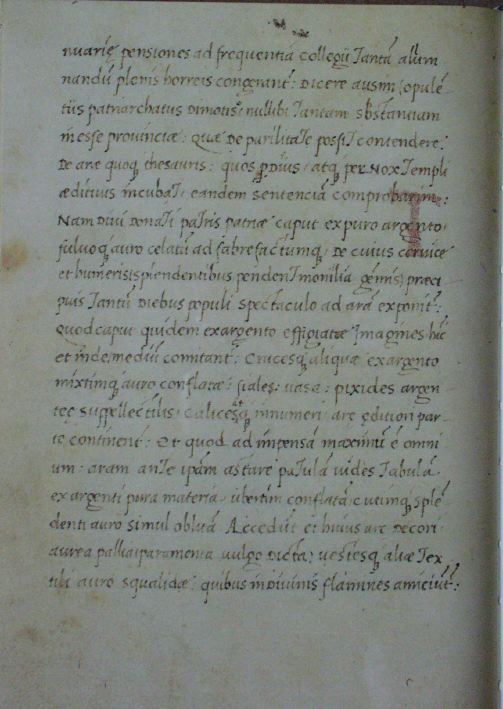 nuarię pensiones ad frequentiā collegii Tantā alum
nandū plenis horreis congerant: Dicere ausim (opulē
tiis patriarchatus dimotis) nullibi Tantam sbstantiam
inesse provinciæ: Quæ de parilitate possit contendere:
De arc quoq thesauris: quos p dius, atq per nox Templi
ædituus incubat, eandem sentenciā comprobarim:
Nam Divi Donati patris patriæ caput ex puro argento,
fuluoq auro celatū ad fabrefactumq, De cuius cervice
et humeris spiendentibus pendent monilia gemis) præci
puis Tantū Diebus populi spectaculo ad arā exponit:
Quod caput quidem ex argento effigiatæ Imagines hīc
et inde medium comitant: Crucesq aliquæ ex argento
mixtimq auro conflatæ: siales: vasa: pixides argen
teę suppellectilis, calicesq et innumeri arc ędition par
te continent: Et quod ad impensā maximū ē omni
um: aram ante ipam astare patulā vides Tabulā
ex argenti pura materia, ubertim conflatā, cutimq splē
denti auro simul oblitā Accedūt et huius arc decori
aurea pallia paramenta vulgo dicta; vestesq aliæ Tex
tili auro squalidæ, quibus in divinis flamines amiciūt: